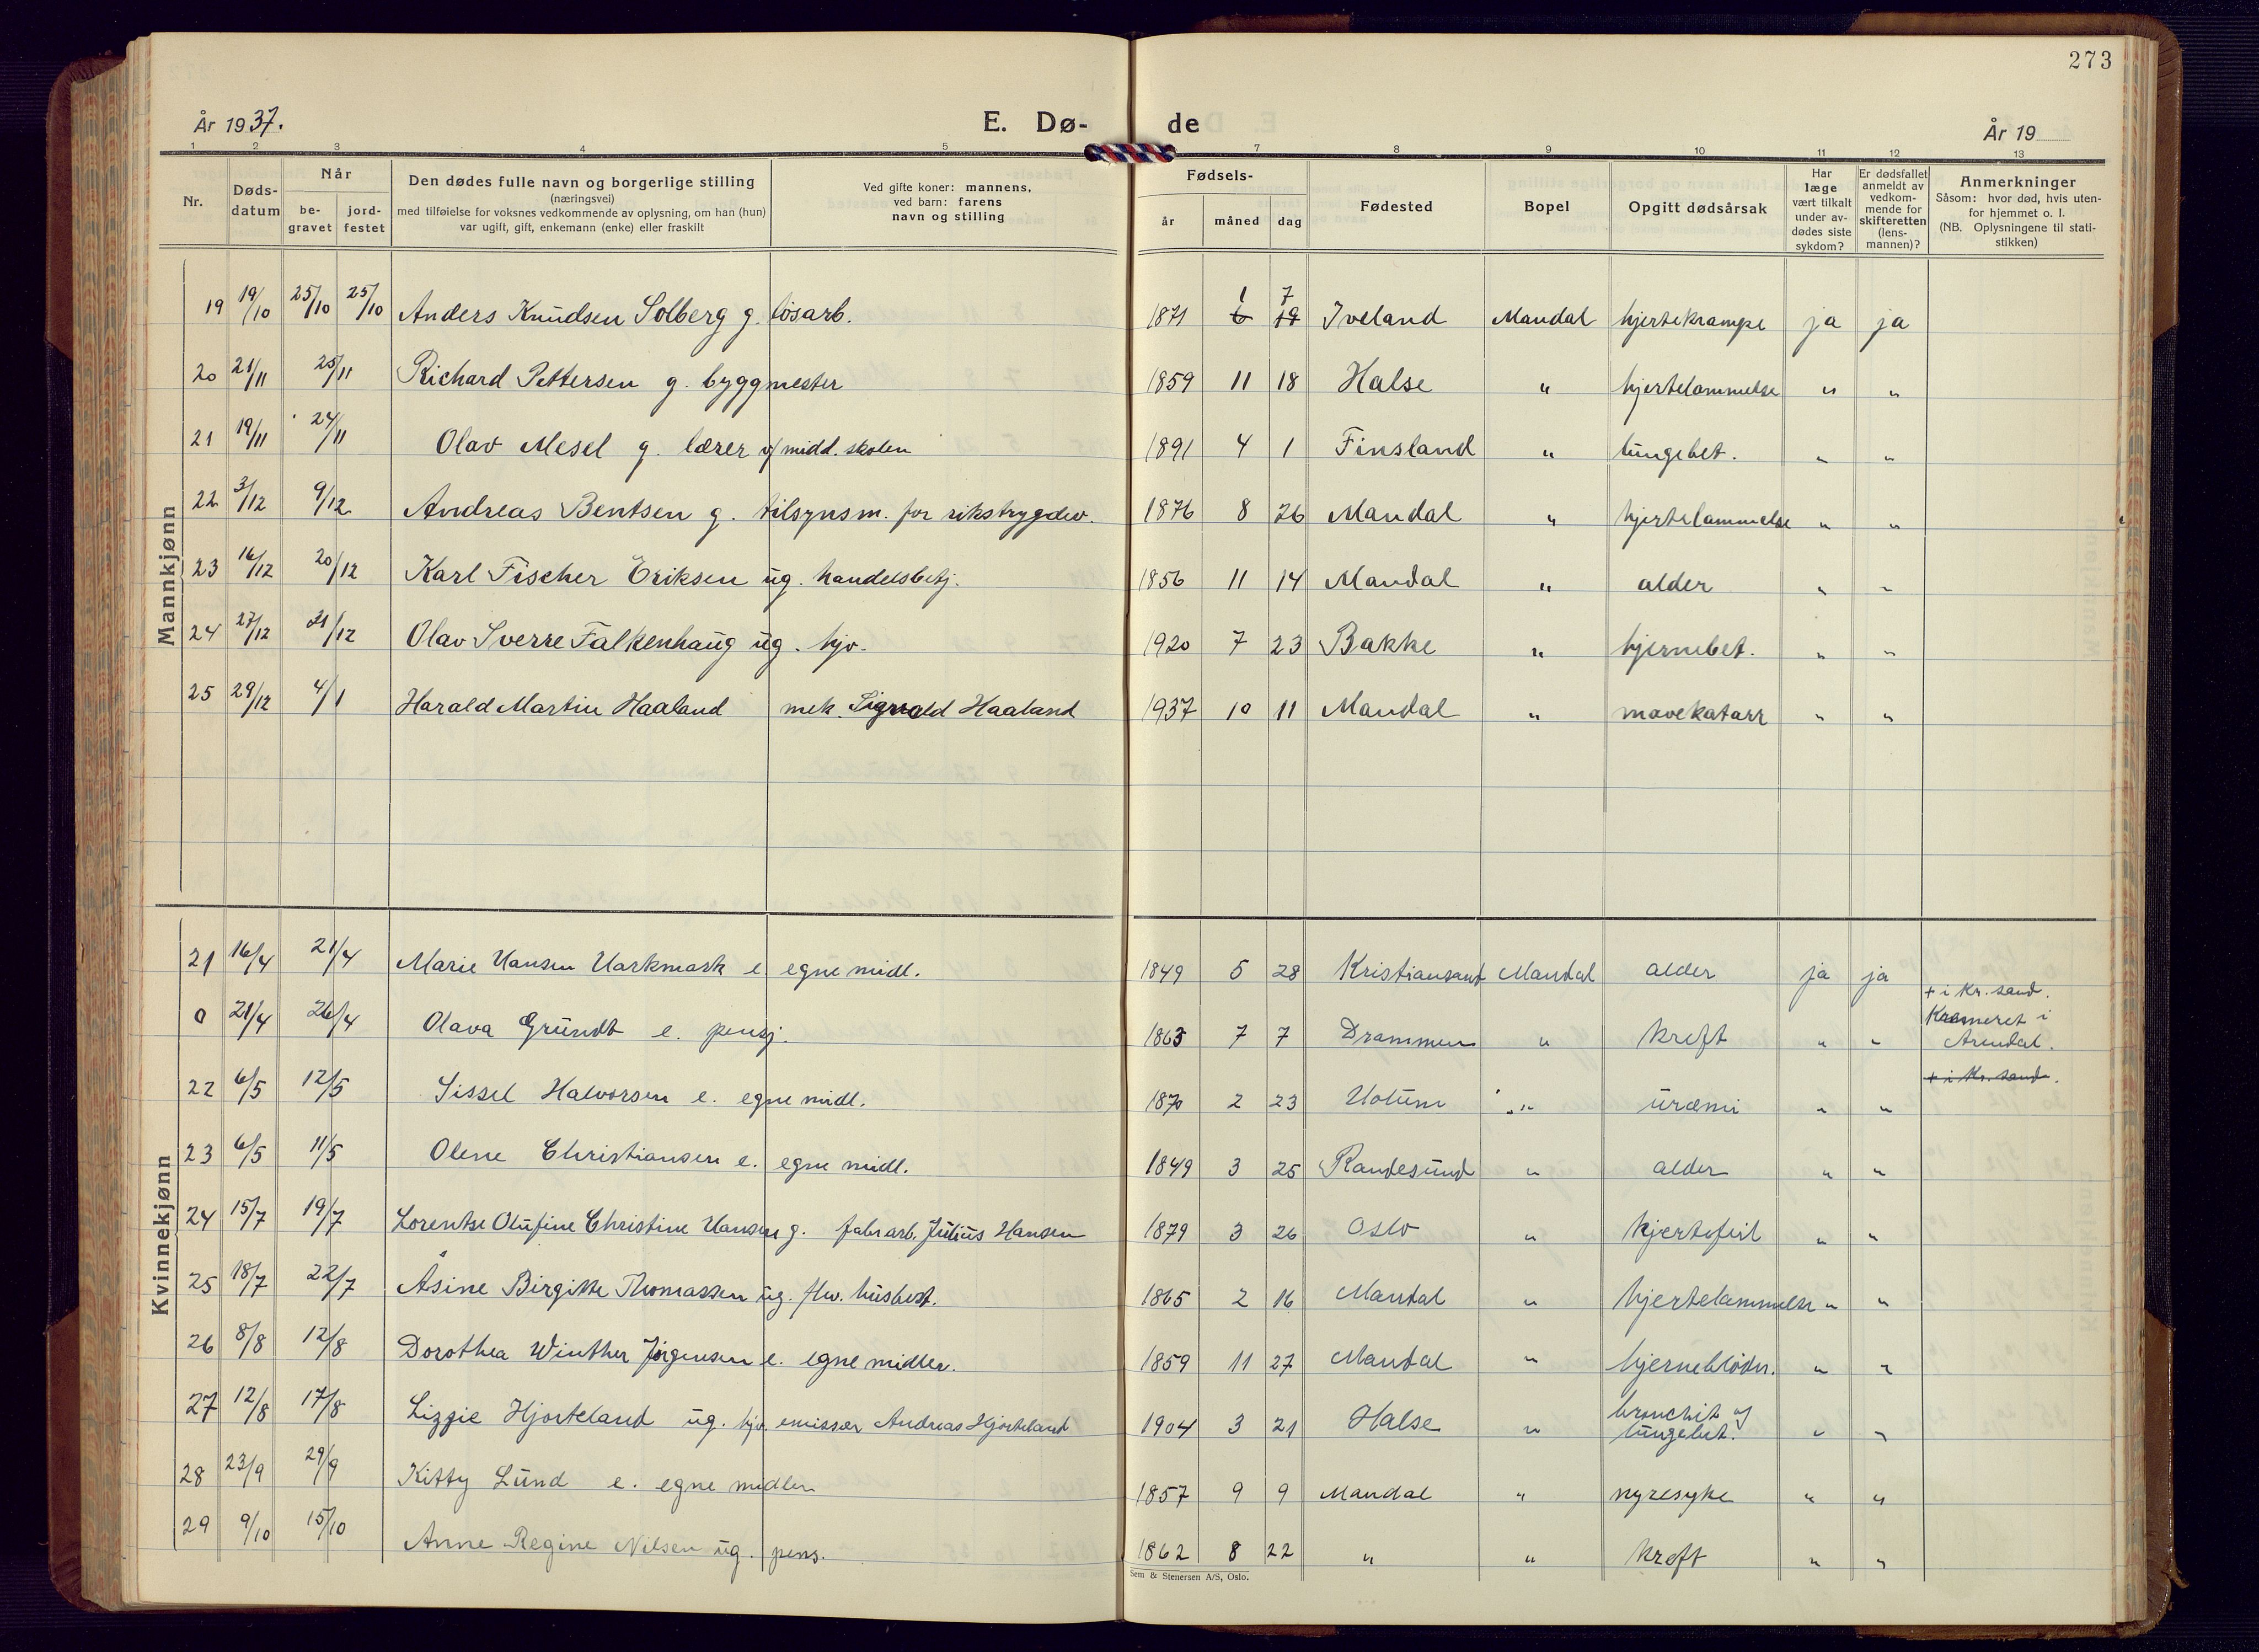 273
År 1937.
E. Dø-
de
År 19
1 2 3 4 5 7 8 9 10 11 12 13
Nr.
Døds-
datum
Når
be-
gravet
jord-
festet
Den dødes fulle navn og borgerlige stilling
(næringsvei)
med tilføielse for voksnes vedkommende av oplysning, om han (hun)
var ugift, gift, enkemann (enke) eller fraskilt
Ved gifte koner: mannens,
ved barn: farens
navn og stilling
Fødsels-
år måned dag
Fødested
Bopel
Opgitt dødsårsak
Har
læge
vært tilkalt
under av-
dødes siste
sykdom?
Er dødsfallet
anmeldt av
vedkom-
mende for
skifteretten
(lens-
mannen)?
Anmerkninger
Såsom: hvor død, hvis uten-
for hjemmet o. l.
(NB. Oplysningene til stati-
stikken)
Mannkjønn
19 19/10 25/10 25/10 Anders Knudsen Solberg g. løsarb. 1871 1 6 7 19 Iveland Mandal hjertekrampe ja ja
20 21/11 25/11 Richard Pettersen g. byggmester 1859 11 18 Halse " hjertelammelse " "
21 19/11 24/11 Olav Mesel g. lærer v/ midd. skolen 1891 4 1 Finsland " lungebet. " "
22 3/12 9/12 Andreas Bentsen g. tilsynsm. for rikstrygdev. 1876 8 26 Mandal " hjertelammelse " "
23 16/12 20/12 Karl Fischer Eriksen ug. handelsbetj. 1856 11 14 Mandal " alder " "
24 27/12 31/12 Olav Sverre Falkenhaug ug. hjv. 1920 7 23 Bakke " hjernebet. " "
25 29/12 4/1 Harald Martin Haaland mek. Sigvald Haaland 1937 10 11 Mandal " mavekatarr " "
Kvinnekjønn
21 16/4 21/4 Marie Hansen Harkmark e egne midl. 1849 5 28 Kristiansand Mandal alder ja ja
+ i Kr. sand.
0 21/4 26/4 Olava Grundt e. pensj. 1863 7 7 Drammen " kreft " " Kremeret i
Arendal.
+ i Kr. sand.
22 6/5 12/5 Sissel Halvorsen e. egne midl. 1870 2 23 Holum " uræmi " "
23 6/5 11/5 Olene Christiansen e. egne midl. 1849 3 25 Randesund " alder " "
24 15/7 19/7 Lorentse Olufine Christine Hansen g. fabr arb. Julius Hansen 1879 3 26 Oslo " hjertefeil " "
25 18/7 22/7 Åsine Birgitte Thomassen ug. fhv. husbest. 1865 2 16 Mandal " hjertelammelse " "
26 8/8 12/8 Dorothea Winther Jørgensen e. egne midler. 1859 11 27 Mandal " hjerneblødn. " "
27 12/8 17/8 Lizzie Hjorteland ug. hjv. emissær Andreas Hjorteland 1904 3 21 Halse " bronchit og
lungebet. " "
28 23/9 29/9 Kitty Lund e. egne midler 1857 9 9 Mandal " nyresyke " "
29 9/10 15/10 Anne Regine Nilsen ug. pens. 1862 8 22 " " kreft " "
Sem & Stenersen A/S, Oslo.